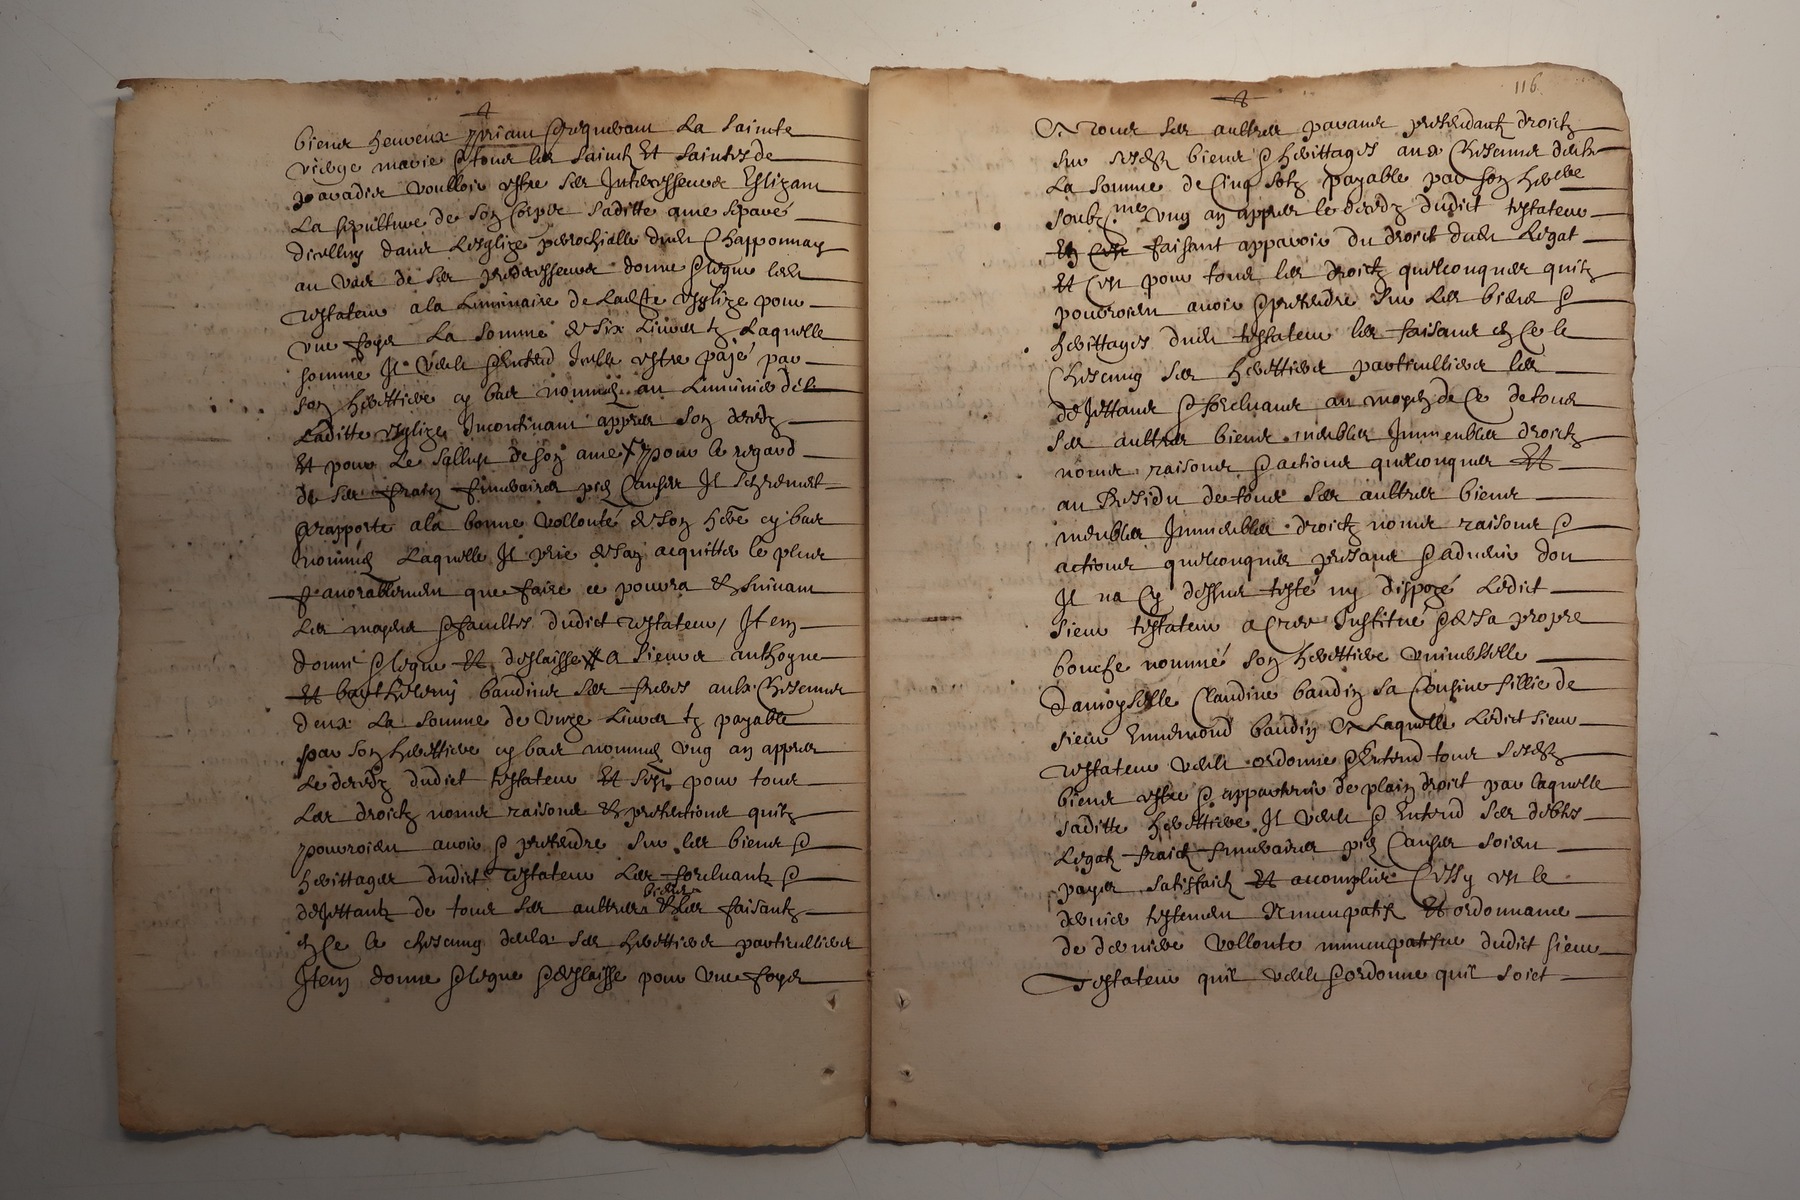 biens heureux priant & requerant La sainte
vierge marie & tous les saints Et saintes de
paradis voulloir estre ses Intercesseurs Eslizant
La sepulture de son Corps saditte ame separé
dicelluy dans Lesglize parrochialle dudit Chapponnay
au vas de ses predecesseurs donne & legue ledit
testateur a la Luminaire de Ladicte esglize pour
une foys La somme de six Livres tz Laquelle
somme Il veult & Entend Icelle estre payé par
son herettiere cy bas nommée au Luminier de
Laditte esglize Incontinant appres son decedz
Et pour Le sallut de son ame & pour le regard
de ses fraiz funeraires pies Causes Il sen remet
& rapporte a la bonne vollonté de son here cy bas
nommée Laquelle Il prie de san acquitter le plus
favorablement que faire ce pourra & suivant
Les moyens & facultes dudict testateur / Item
donne & legue Et deslaisse a sieurs anthoyne
Et barthelemy baudins ses freres aulx Chescuns
deux La somme de vinge Livres tz payable
par son herettiere cy bas nommée ung an appres
Le decedz dudict testateur Et pour tous
Les droictz noms raisons & pretentions quilz
pourroient avoir & pretendre sur les biens &
herittages dudict testateur Les forcluantz &
dejettantz de tous ses aultres biens Et les faisantz
en Ce le chescung deulx ses herettiers particulliers
Item donne & legue & deslaisse pour une foys
116
A tous ses aultres parans pretendantz droictz
sur sesdtz biens & herittages aux Chescuns deulx
La somme de Cinq solz payable par son here
soubz nomé ung an appres le decedz dudict testateur
En faisant apparoir du droict dudit Legat
Et Cest pour tous les droictz quelconques quilz
pourroient avoir & pretendre sur Les biens &
herittages dudit testateur les faisans en Ce le
Chescung ses herettiers particulliers les
dejettans & forcluans au moyen de Ce de tous
ses aultres biens meubles Immeubles droictz
noms raisons & actions quelconques Et
au Residu de tous ses aultres biens
meubles Immeubles droictz noms raisons &
actions quelconques presans & advenir dou
Il na Cy dessus testé ny dispozé Ledict
sieur testateur a Cree Institué & de sa propre
bouche nommé son herettiere universelle
Damoyselle Claudine baudin sa Cousine fillie de
sieur Ennemond baudin A Laquelle Ledict sieur
testateur veult ordonne & Entend tous sesdtz
biens estre & appartenir de plain droict par laquelle
saditte herettiere Il veult & Entend ses debtes
Legatz fraictz funeraires pies Causes soient
payes satisfaictz Et acomplies Cessy est le
dernier testement Nuncupatif Et ordonnance
de derniere vollonte nuncupative dudict sieur
Testateur quil veult & ordonne quil soict